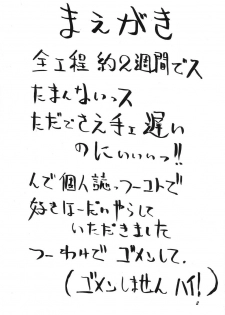 まえがき
全工程 約2週間でス
たまんないっス
ただでさえ手ェ遅い
のにいいいっ!!
んで個人誌っつーコトで
好きほーだいやらして
いただきました
つーわけで ゴメンして.
(ゴメンしません ハイ!)